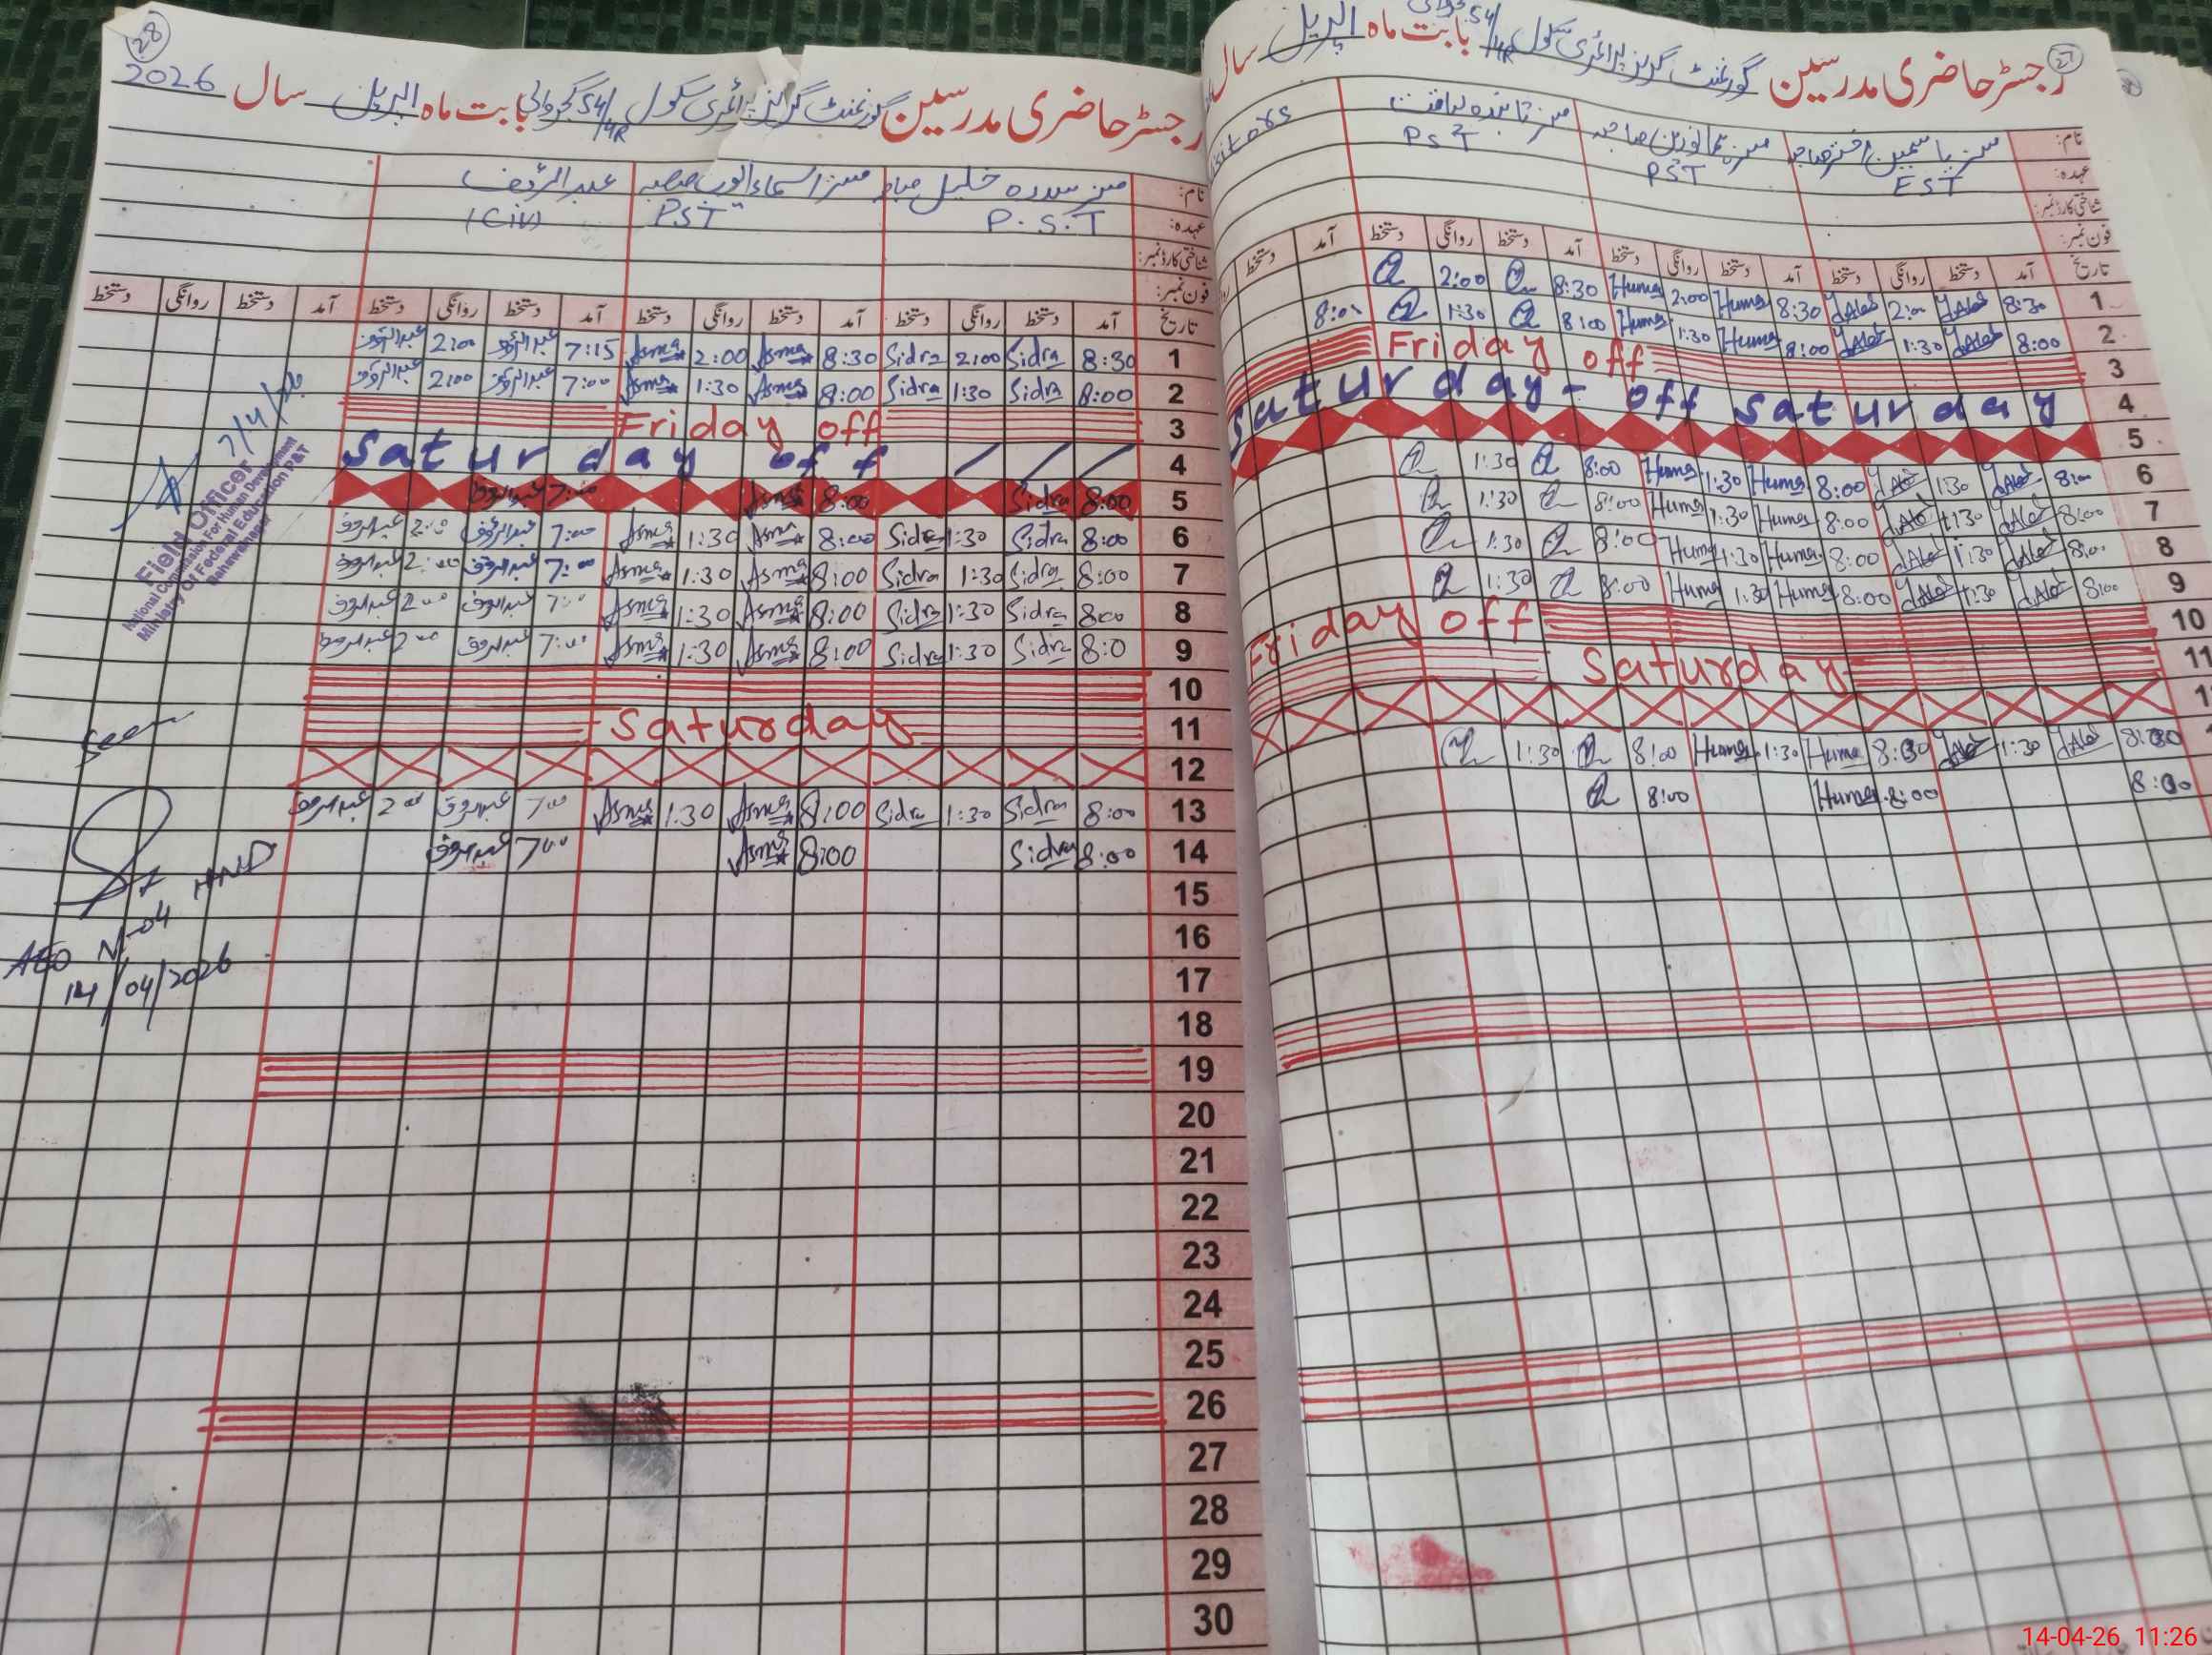 28
رجسٹر حاضری مدرسین گورنمنٹ گرلز پرائمری سکول 54/4R بابت ماہ اپریل سال 2026
نام: مسز سدرہ خلیل صاحبہ مسز اسماء ایوب صاحبہ عبدالرؤف
عہدہ: P.S.T PST (Civ)
شناختی کارڈ نمبر:
فون نمبر:
تاریخ آمد دستخط روانگی دستخط آمد دستخط روانگی دستخط آمد دستخط روانگی دستخط آمد دستخط روانگی دستخط
1 8:30 Sidra 2:00 Sidra 8:30 Asma 2:00 Asma 7:15 عبدالرؤف 2:00 عبدالرؤف
2 8:00 Sidra 1:30 Sidra 8:00 Asma 1:30 Asma 7:00 عبدالرؤف 2:00 عبدالرؤف
3 Friday off
4 Saturday off
5 8:00 Sidra 8:00 Asma 7:00 عبدالرؤف
6 8:00 Sidra 1:30 Sidra 8:00 Asma 1:30 Asma 7:00 عبدالرؤف 2:00 عبدالرؤف
7 8:00 Sidra 1:30 Sidra 8:00 Asma 1:30 Asma 7:00 عبدالرؤف 2:00 عبدالرؤف
8 8:00 Sidra 1:30 Sidra 8:00 Asma 1:30 Asma 7:00 عبدالرؤف 2:00 عبدالرؤف
9 8:0 Sidra 1:30 Sidra 8:00 Asma 1:30 Asma 7:00 عبدالرؤف 2:00 عبدالرؤف
10
11 Saturday
12
13 8:00 Sidra 1:30 Sidra 8:00 Asma 1:30 Asma 7:00 عبدالرؤف 2:00 عبدالرؤف
14 8:00 Sidra 8:00 Asma 7:00 عبدالرؤف
15
16
17
18
19
20
21
22
23
24
25
26
27
28
29
30
7/4/26
Field Officer
National Commission For Human Development
Ministry Of Federal Education P&T
Bahawalnagar
Seen
HND
AEO N-04
14/04/2026
27
رجسٹر حاضری مدرسین گورنمنٹ گرلز پرائمری سکول 54/4R بابت ماہ اپریل سال
نام: مسز یاسمین اختر صاحبہ مسز ہما نورین صاحبہ مسز تابندہ لیاقت
عہدہ: EST PST PST
شناختی کارڈ نمبر:
فون نمبر:
تاریخ آمد دستخط روانگی دستخط آمد دستخط روانگی دستخط آمد دستخط روانگی دستخط آمد دستخط
1 8:30 2:00 8:30 Huma 2:00 Huma 8:30 2:00
2 8:00 1:30 8:00 Huma 1:30 Huma 8:00 1:30
3 Friday off
4 Saturday - off Saturday
5
6 8:00 1:30 8:00 Huma 1:30 Huma 8:00 1:30
7 8:00 1:30 8:00 Huma 1:30 Huma 8:00 1:30
8 8:00 1:30 8:00 Huma 1:30 Huma 8:00 1:30
9 8:00 1:30 8:00 Huma 1:30 Huma 8:00 1:30
10 Friday off
11 Saturday
8:00 1:30 Huma 1:30 Huma 8:00 1:30
8:00 8:00 Huma 8:00
14-04-26 11:26